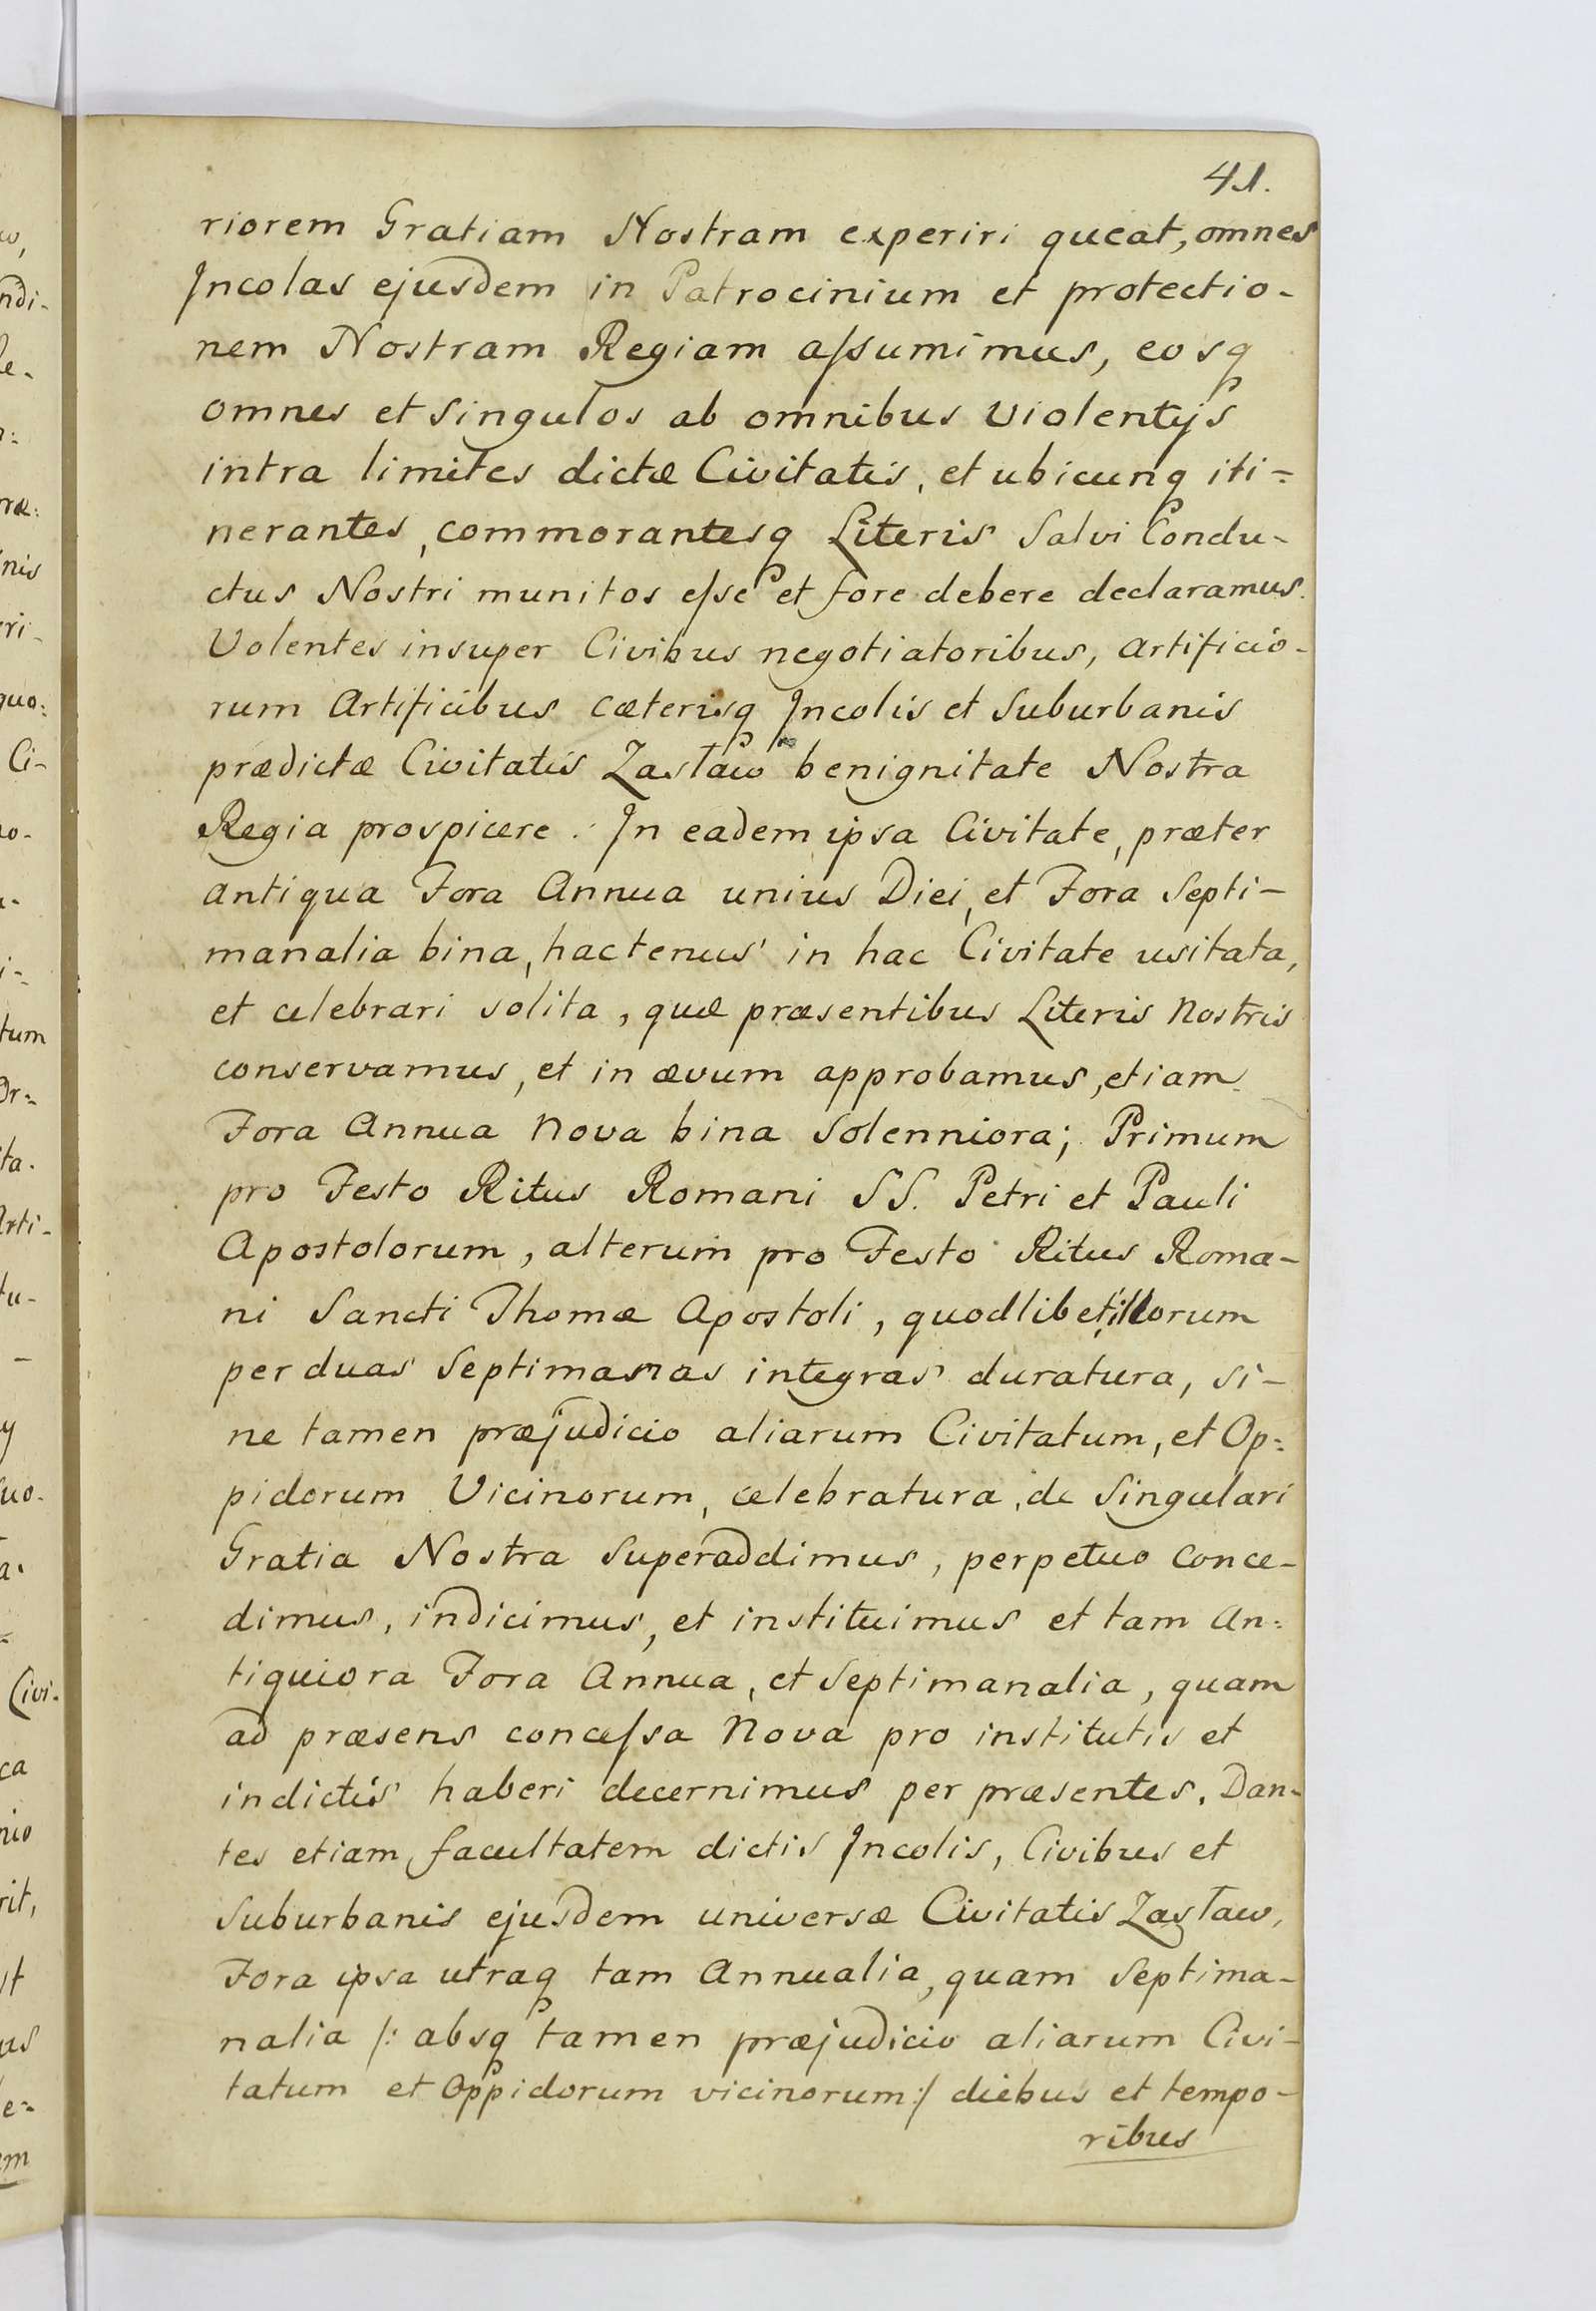 41.
riorem Gratiam Nostram experiri queat, omnes
Incolas ejusdem in Patrocinium et protectio-
nem Nostram Regiam aſsumimus, eosq
omnes et singulos ab omnibus violentijs
intra limites dictæ Civitatis, et ubicunq iti=
nerantes, commorantesq Literis Salvi Condu-
ctus Nostri munitos eſse et fore debere declaramus.
Volentes insuper Civibus negotiatoribus, Artificio-
rum Artificibus cæterisq Incolis et Suburbanis
prædictæ Civitatis Zasław benignitate Nostra
Regia prospicere. In eadem ipsa Civitate, præter
antiqua Fora Annua unius Diei, et Fora Septi-
manalia bina, hactenus in hac Civitate usitata,
et celebrari solita, quæ præsentibus Literis Nostris
conservamus, et in ævum approbamus, etiam
Fora Annua Nova bina Solenniora; Primum
pro Festo Ritus Romani SS. Petri et Pauli
Apostolorum, alterum pro Festo Ritus Roma-
ni Sancti Thomæ Apostoli, quodlibet illorum
per duas Septimanas integras duratura, si-
ne tamen præjudicio aliarum Civitatum, et Op=
pidorum Vicinorum, celebratura, de Singulari
Gratia Nostra Superaddimus, perpetuo conce-
dimus, indicimus, et instituimus et tam An=
tiquiora Fora Annua, et Septimanalia, quam
ad præsens conceſsa Nova pro institutis et
indictis haberi decernimus per præsentes. Dan-
tes etiam facultatem dictis Incolis, Civibus et
Suburbanis ejusdem universæ Civitatis Zasław,
Fora ipsa utraq tam Annualia, quam Septima-
nalia /: absq tamen præjudicio aliarum Civi-
tatum et Oppidorum vicinorum :/ diebus et tempo-
ribus
ndi-
ræ:
nis
eri-
quo:
Ci-
tum
ta.
Arti-
tu-
suo.
Civi-
ca
nio
rit,
us
em